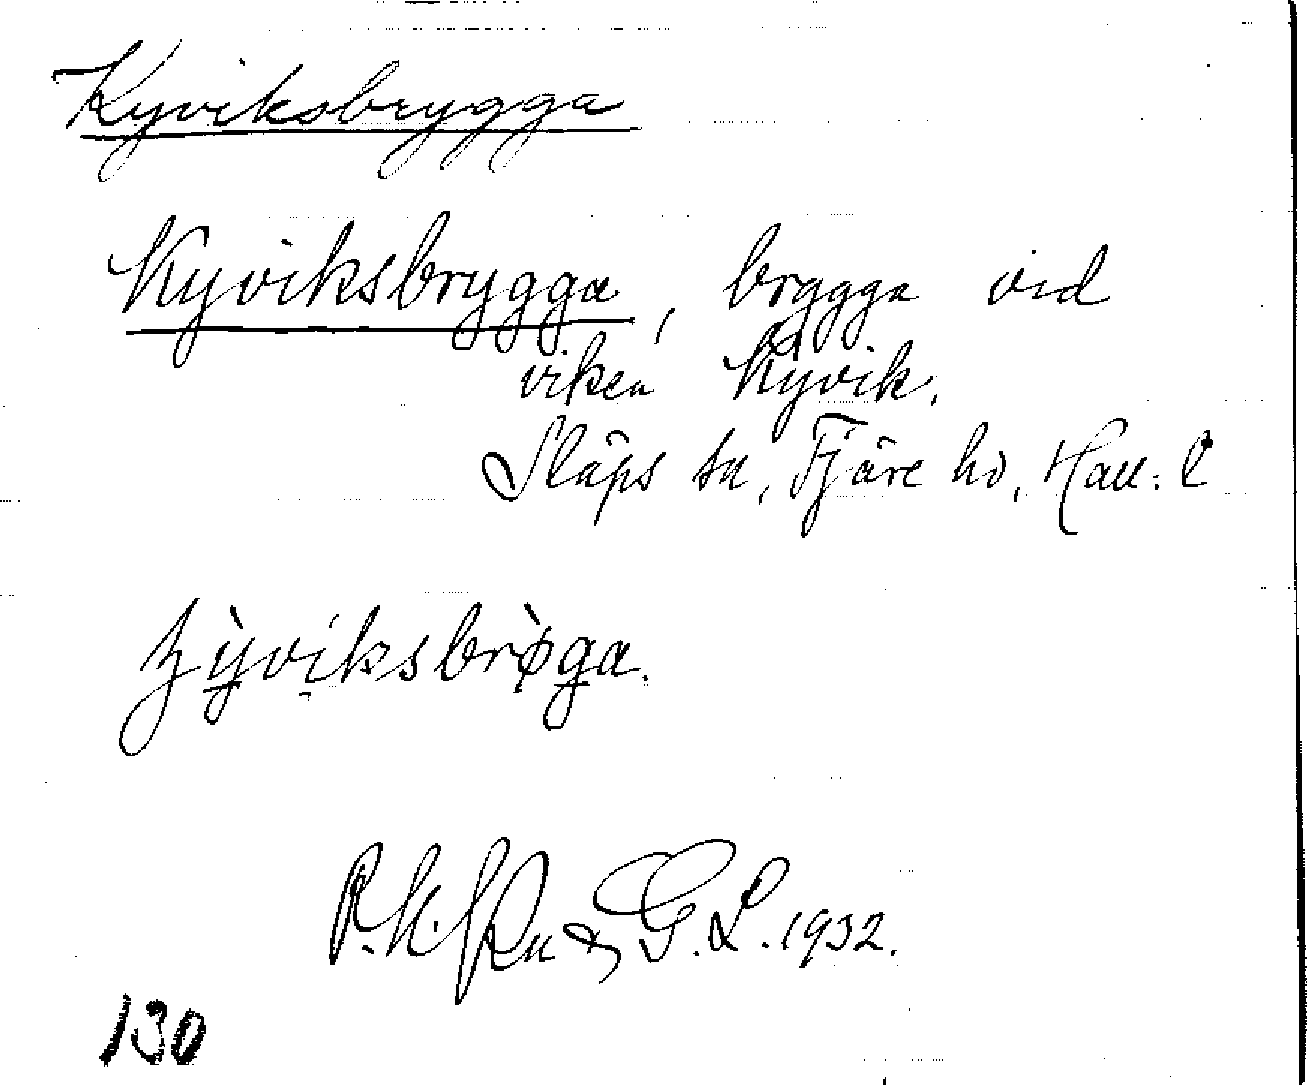 Kyviksbrygga
Kyviksbrygga, brygga vid
viken Kyvik.
Släps sn, Fjäre hd, Hall. l
ʒỳviksbrø̀ga.
G. L. 1932.
130